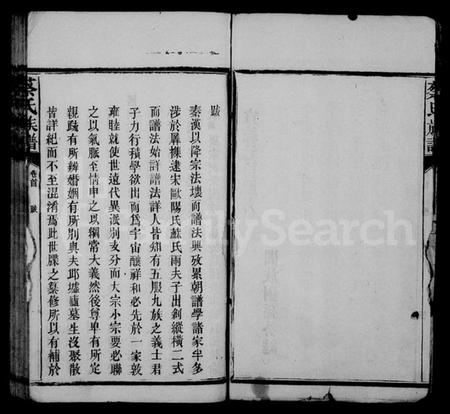 跋
秦漢以降宗法壞而譜法興攷累朝譜學諸家半多
涉於厖襍逮宋歐陽氏蘇氏兩夫子出創縱橫二式
而譜法始詳譜法詳人皆知有五服九族之義士君
子力行積學欲出而為宇宙釀祥和必先於一家敦
雍睦就使世遠代異派別支分而大宗小宗要必聯
之以氣脈至情申之以綱常大義然後尊卑有所定
親疏有所辨婚姻有所別與夫邱墟廬墓生沒聚散
皆詳紀而不至混淆焉此世牒之纂修所以有補於
蔡氏族譜
卷首
跋
FamilySearch